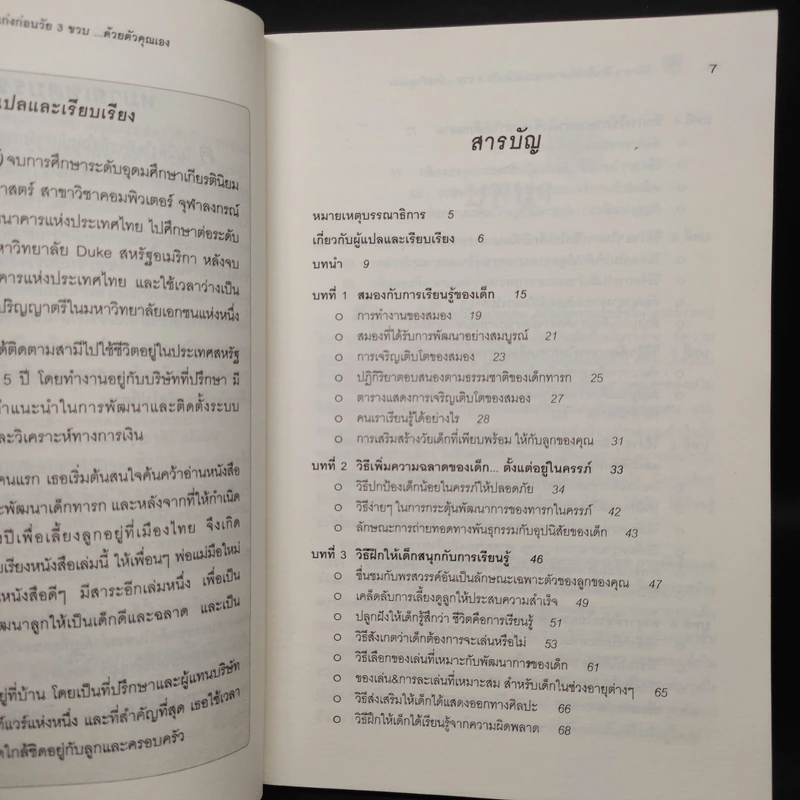 เก่งก่อนวัย 3 ขวบ ...ด้วยตัวคุณเอง
ปลและเรียบเรียง
จบการศึกษาระดับอุดมศึกษาเกียรตินิยม
าสตร์ สาขาวิชาคอมพิวเตอร์ จุฬาลงกรณ์
นาคารแห่งประเทศไทย ไปศึกษาต่อระดับ
หาวิทยาลัย Duke สหรัฐอเมริกา หลังจบ
คารแห่งประเทศไทย และใช้เวลาว่างเป็น
ปริญญาตรีในมหาวิทยาลัยเอกชนแห่งหนึ่ง
ด้ติดตามสามีไปใช้ชีวิตอยู่ในประเทศสหรัฐ
5 ปี โดยทำงานอยู่กับบริษัทที่ปรึกษา มี
ำแนะนำในการพัฒนาและติดตั้งระบบ
ละวิเคราะห์ทางการเงิน
คนแรก เธอเริ่มต้นสนใจค้นคว้าอ่านหนังสือ
ะพัฒนาเด็กทารก และหลังจากที่ให้กำเนิด
งปีเพื่อเลี้ยงลูกอยู่ที่เมืองไทย จึงเกิด
เรียงหนังสือเล่มนี้ ให้เพื่อนๆ พ่อแม่มือใหม่
หนังสือดีๆ มีสาระอีกเล่มหนึ่ง เพื่อเป็น
ฒนาลูกให้เป็นเด็กดีและฉลาด และเป็น
ยู่ที่บ้าน โดยเป็นที่ปรึกษาและผู้แทนบริษัท
์แวร์แห่งหนึ่ง และที่สำคัญที่สุด เธอใช้เวลา
ดใกล้ชิดอยู่กับลูกและครอบครัว
7
สารบัญ
หมายเหตุบรรณาธิการ 5
เกี่ยวกับผู้แปลและเรียบเรียง 6
บทนำ 9
บทที่ 1 สมองกับการเรียนรู้ของเด็ก 15
การทำงานของสมอง 19
สมองที่ได้รับการพัฒนาอย่างสมบูรณ์ 21
การเจริญเติบโตของสมอง 23
ปฏิกิริยาตอบสนองตามธรรมชาติของเด็กทารก 25
ตารางแสดงการเจริญเติบโตของสมอง 27
คนเราเรียนรู้ได้อย่างไร 28
การเสริมสร้างวัยเด็กที่เพียบพร้อม ให้กับลูกของคุณ 31
บทที่ 2 วิธีเพิ่มความฉลาดของเด็ก... ตั้งแต่อยู่ในครรภ์ 33
วิธีปกป้องเด็กน้อยในครรภ์ให้ปลอดภัย 34
วิธีง่ายๆ ในการกระตุ้นพัฒนาการของทารกในครรภ์ 42
ลักษณะการถ่ายทอดทางพันธุกรรมกับอุปนิสัยของเด็ก 43
บทที่ 3 วิธีฝึกให้เด็กสนุกกับการเรียนรู้ 46
ชื่นชมกับพรสวรรค์อันเป็นลักษณะเฉพาะตัวของลูกของคุณ 47
เคล็ดลับการเลี้ยงดูลูกให้ประสบความสำเร็จ 49
ปลูกฝังให้เด็กรู้สึกว่า ชีวิตคือการเรียนรู้ 51
วิธีสังเกตว่าเด็กต้องการจะเล่นหรือไม่ 53
วิธีเลือกของเล่นที่เหมาะกับพัฒนาการของเด็ก 61
ของเล่น&การละเล่นที่เหมาะสม สำหรับเด็กในช่วงอายุต่างๆ 65
วิธีส่งเสริมให้เด็กได้แสดงออกทางศิลปะ 66
วิธีฝึกให้เด็กได้เรียนรู้จากความผิดพลาด 68